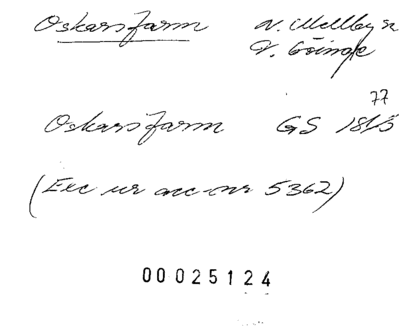 Oskarsfarm N. Mellby sn
V. Göinge
77
Oskarsfarm GS 1815
(Exc ur acc-nr 5362)
00025124